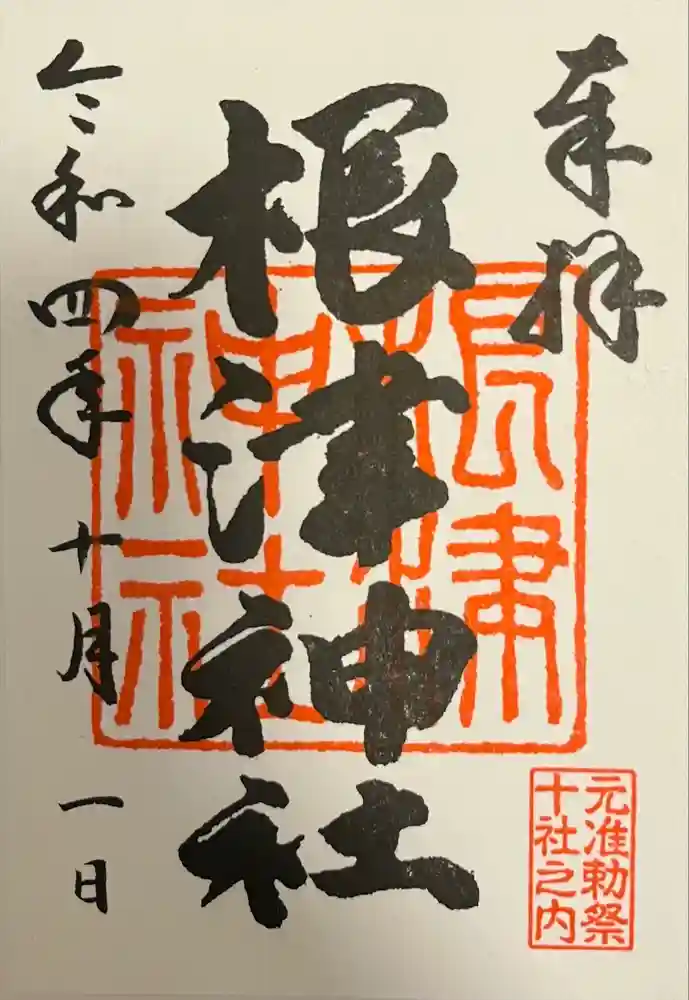 奉拝
根津神社
根津
神社
元准勅祭
十社之内
令和四年十月一日